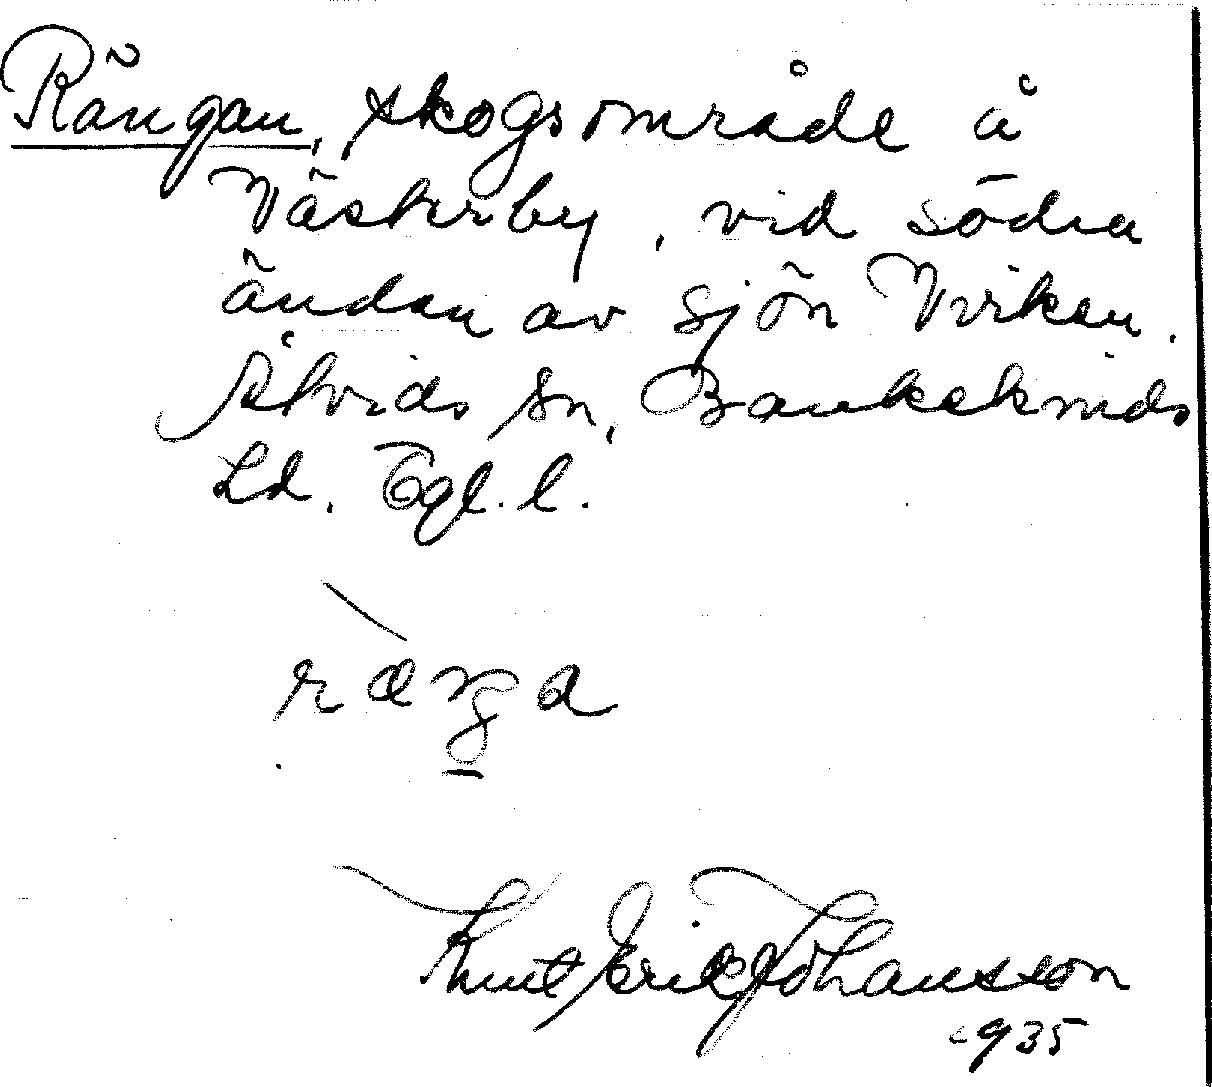 Rängan, skogsområde å
Västerby, vid södra
ändan av sjön Virken.
Åtvids sn, Bankekinds
hd. Ögl. l.
ræŋa
Knut Erik Johansson
1935